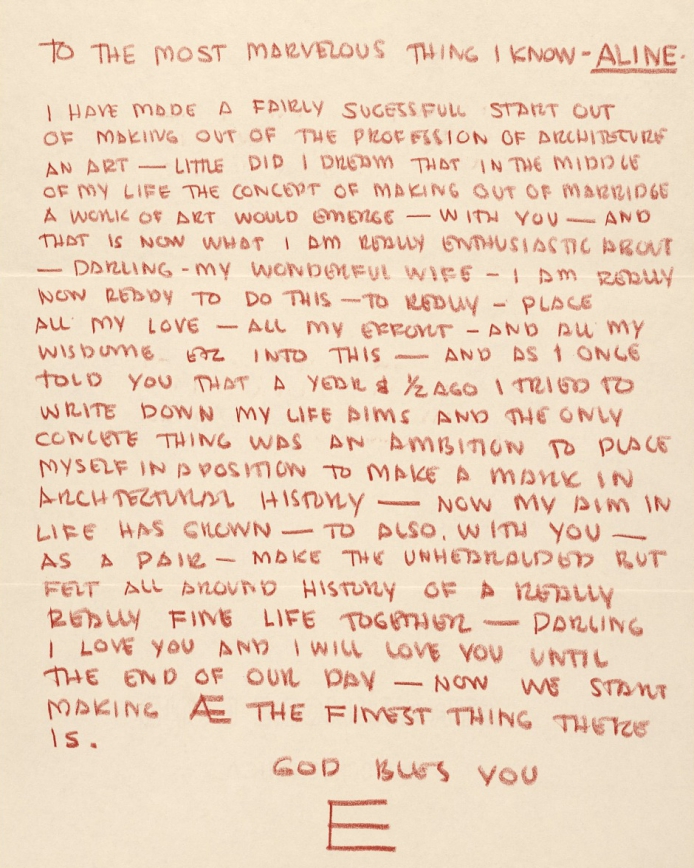 TO THE MOST MARVELOUS THING I KNOW - ALINE.
I HAVE MADE A FAIRLY SUCESSFULL START OUT
OF MAKING OUT OF THE PROFESSION OF ARCHITETURE
AN ART — LITTLE DID I DREAM THAT IN THE MIDDLE
OF MY LIFE THE CONCEPT OF MAKING OUT OF MARRIDGE
A WORK OF ART WOULD EMERGE — WITH YOU — AND
THAT IS NOW WHAT I AM REALLY ENTHUSIASTIC ABOUT
— DARLING - MY WONDERFUL WIFE - I AM REALLY
NOW READY TO DO THIS — TO REALLY - PLACE
ALL MY LOVE — ALL MY EFFORT - AND ALL MY
WISDUME ETZ INTO THIS — AND AS I ONCE
TOLD YOU THAT A YEAR & ½ AGO I TRIED TO
WRITE DOWN MY LIFE AIMS AND THE ONLY
CONCLETE THING WAS AN AMBITION TO PLACE
MYSELF IN A POSITION TO MAKE A MARK IN
ARCHITECTURAL HISTORY — NOW MY AIM IN
LIFE HAS GROWN — TO ALSO, WITH YOU —
AS A PAIR — MAKE THE UNHEARALDED BUT
FELT ALL AROUND HISTORY OF A REALLY
REALLY FINE LIFE TOGETHER — DARLING
I LOVE YOU AND I WILL LOVE YOU UNTIL
THE END OF OUR DAY — NOW WE START
MAKING Æ THE FINEST THING THERE
IS.
GOD BLES YOU
E